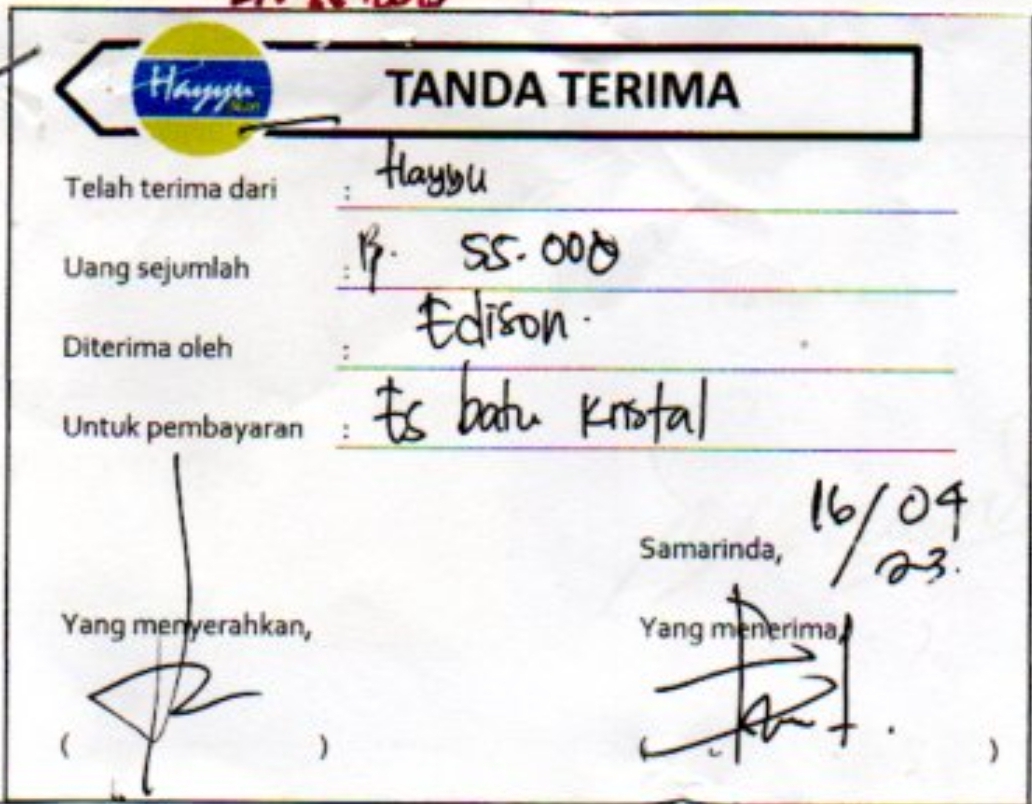 Hayyu
TANDA TERIMA
Telah terima dari : Hayyu
Uang sejumlah : Rp. 55.000
Diterima oleh : Edison.
Untuk pembayaran : Es batu Kristal
Samarinda, 16/04
23.
Yang menyerahkan, Yang menerima,
( ) ( )